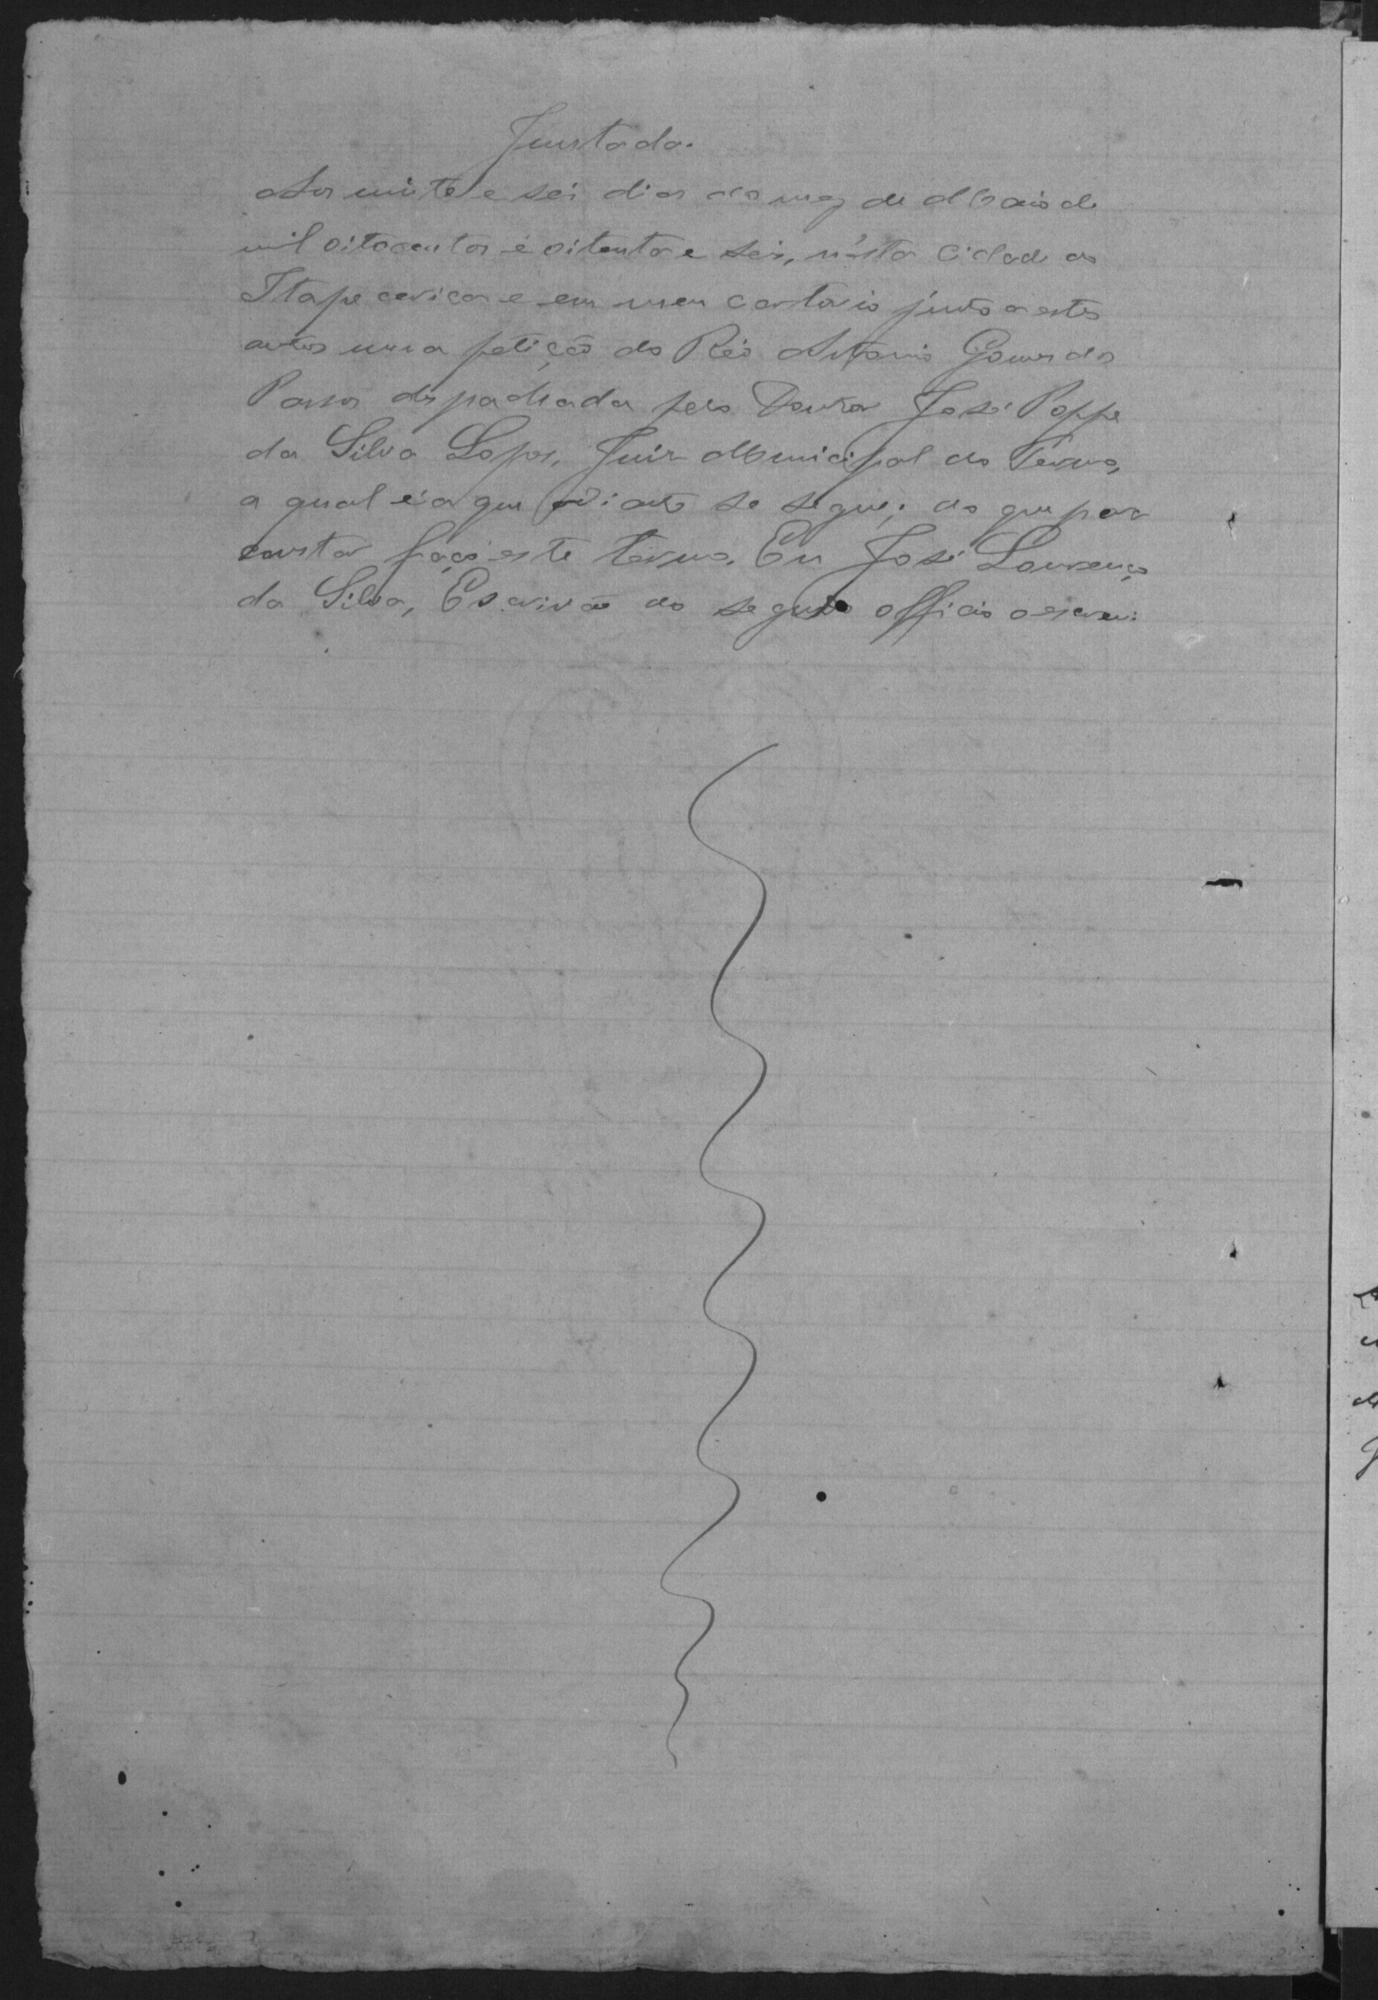 Juntada.
Aos vinte e seis dias do mez de Maio de
mil oitocentos e oitenta e seis, nésta Cidade do
Itapecerica e em meu cartorio junto a estes
autos uma petição do Réo Antonio Gomes dos
Passos despachada pelo Doutor José Poppe
da Silva Lopes, Juiz Municipal do Termo,
a qual é a que adiante se segue; do que para
constar faço este termo. Eu José Lourenço
da Silva, Escrivão do segundo officio o escrevi.